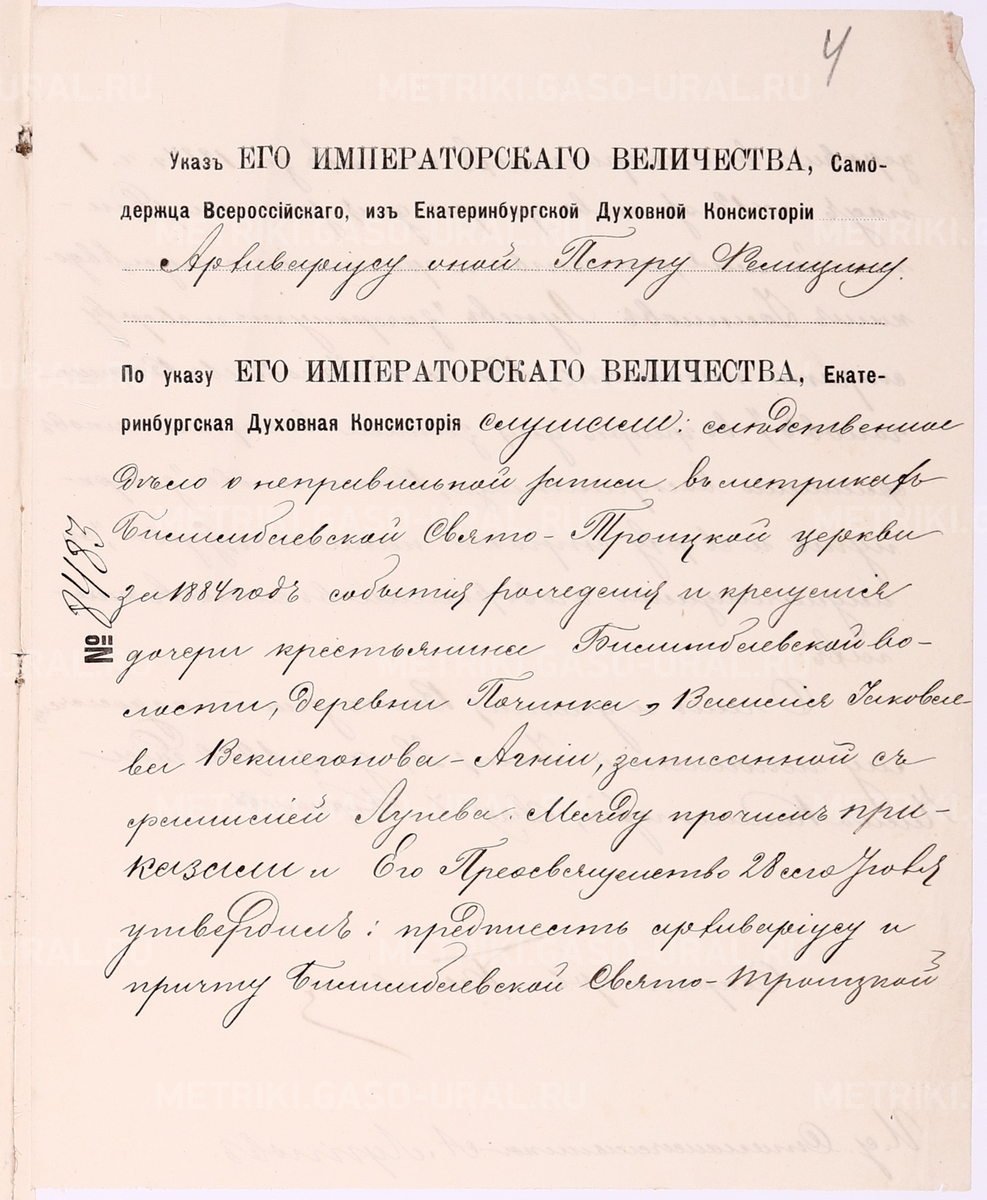 4
METRIKI.GASO-URAL.RU
Указъ ЕГО ИМПЕРАТОРСКАГО ВЕЛИЧЕСТВА, Само-
держца Всероссійскаго, изъ Екатеринбургской Духовной Консисторіи
Архиваріусу оной Петру Фелицину.
По указу ЕГО ИМПЕРАТОРСКАГО ВЕЛИЧЕСТВА, Екате-
ринбургская Духовная Консисторія слушали: слѣдственное
дѣло о неправильной записи въ метрикахъ
Билимбаевской Свято-Троицкой церкви
за 1884 годъ событія рожденія и крещенія
№ 8483
дочери крестьянина Билимбаевской во-
лости, деревни Починка, Василія Іаковле-
ва Векшегонова - Агніи, записанной съ
фамиліей Лупева. Между прочимъ при-
казали и Его Преосвященство 28 сего Іюня
утвердилъ: предписать архиваріусу и
причту Билимбаевской Свято-Троицкой
METRIKI.GASO-URAL.RU